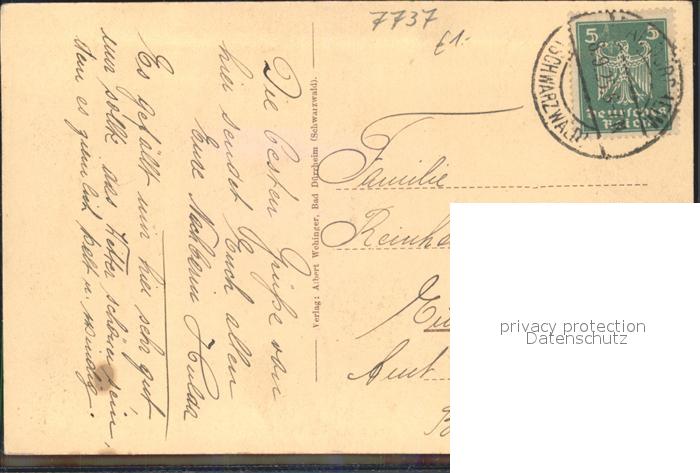 7737
£1.-
5 5
Deutsches
Reich
(SCHWARZWALD)
Die besten Grüße von
hier sendet Euch allen
Eure Nachbarin Hulda
Es gefällt mir hier sehr gut
nur sollte das Wetter schöner sein,
denn es ziemlich kalt u. windig.
Verlag: Albert Wehinger, Bad Dürrheim (Schwarzwald).
Familie
Amt
privacy protection
Datenschutz